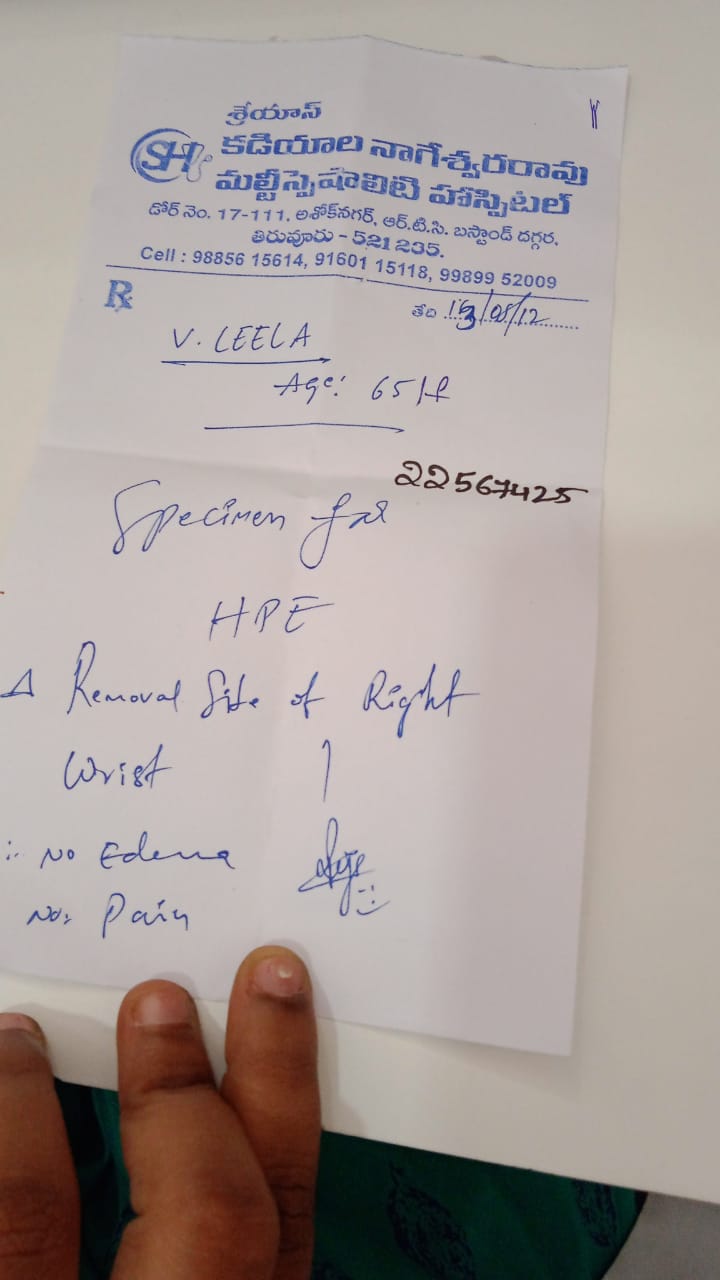 శ్రేయాస్
SH
కడియాల నాగేశ్వరరావు
మల్టీస్పెషాలిటి హాస్పిటల్
డోర్ నెం. 17-111, అశోక్‌నగర్, ఆర్.టి.సి. బస్టాండ్ దగ్గర,
తిరువూరు - 521 235.
Cell : 98856 15614, 91601 15118, 99899 52009
Rx
తేది
V. LEELA
Age: 65/f
22567425
Specimen for
HPE
Δ Removal Site of Right
Wrist
:. No Edema
No. Pain